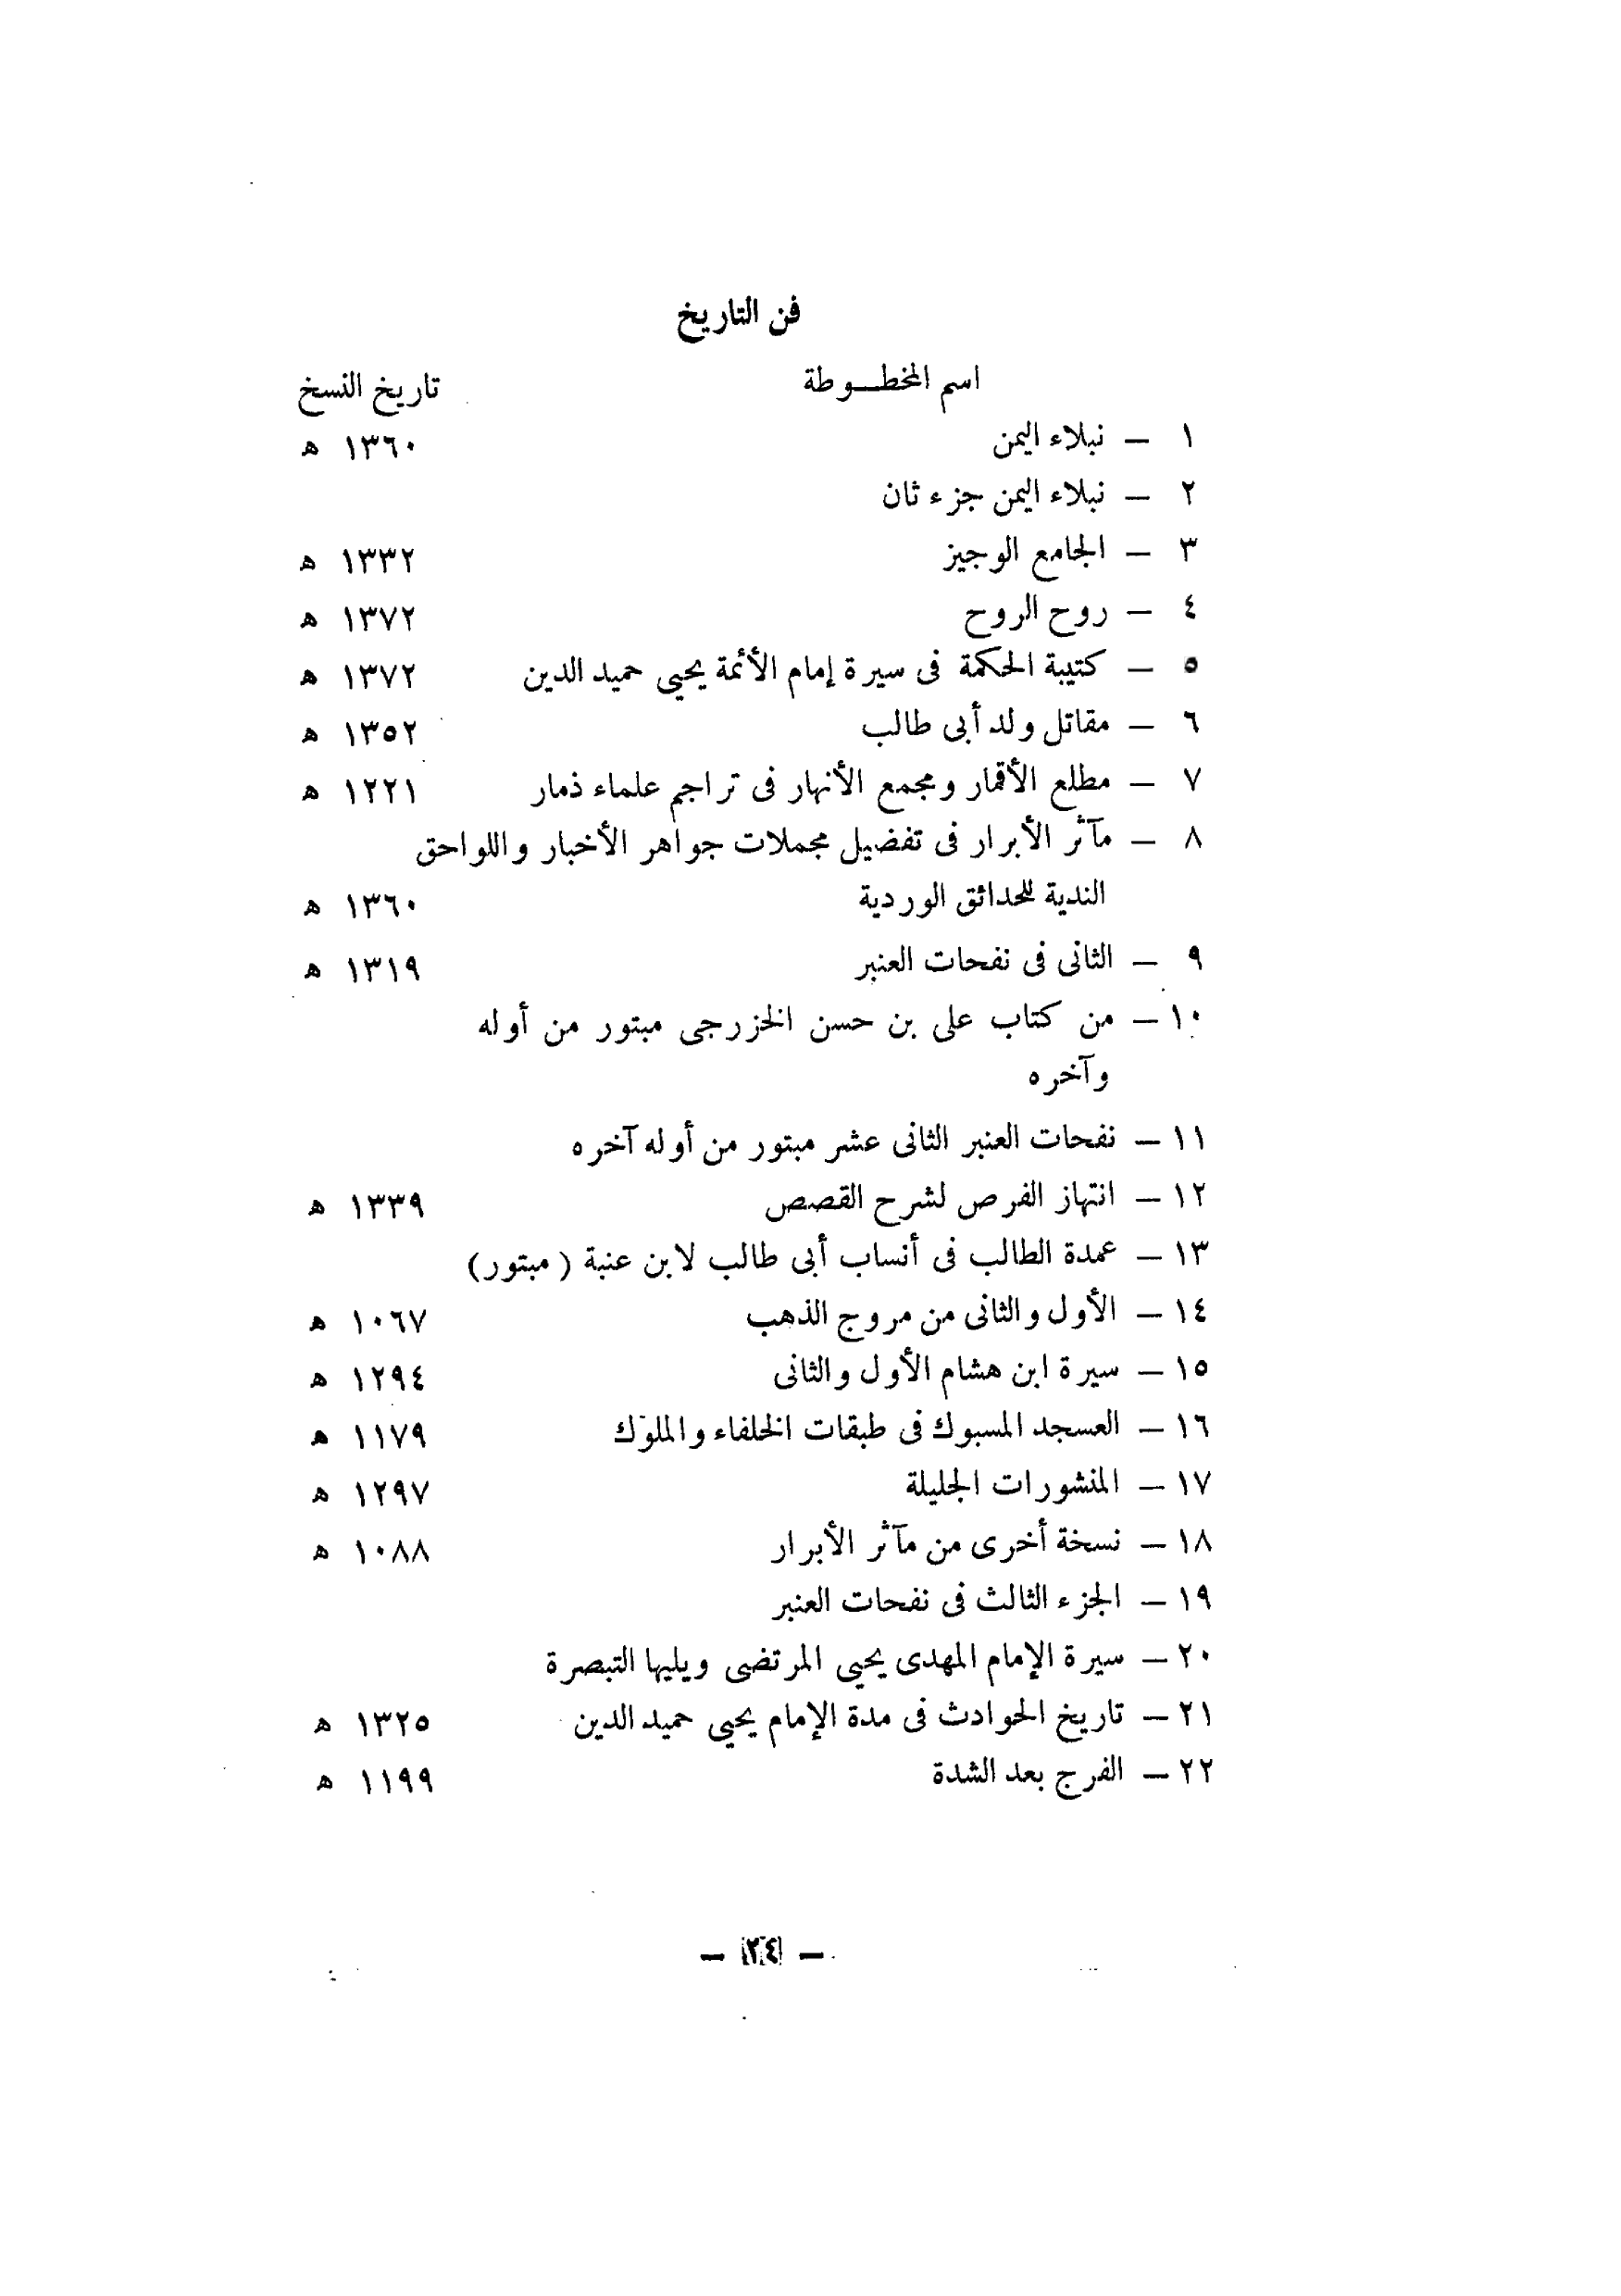 فن التاريخ
اسم المخطـــوطة تاريخ النسخ
١ — نبلاء اليمن ١٣٦٠ ه
٢ — نبلاء اليمن جزء ثان
٣ — الجامع الوجيز ١٣٣٢ ه
٤ — روح الروح ١٣٧٢ ه
٥ — كتيبة الحكمة فى سيرة إمام الأئمة يحيى حميد الدين ١٣٧٢ ه
٦ — مقاتل ولد أبى طالب ١٣٥٢ ه
٧ — مطلع الأقمار ومجمع الأنهار فى تراجم علماء ذمار ١٢٢١ ه
٨ — مآثر الأبرار فى تفضيل مجملات جواهر الأخبار واللواحق
الندية للحدائق الوردية ١٣٦٠ ه
٩ — الثانى فى نفحات العنبر ١٣١٩ ه
١٠ — من كتاب على بن حسن الخزرجى مبتور من أوله
وآخره
١١ — نفحات العنبر الثانى عشر مبتور من أوله آخره
١٢ — انتهاز الفرص لشرح القصص ١٣٣٩ ه
١٣ — عمدة الطالب فى أنساب أبى طالب لابن عنبة ( مبتور)
١٤ — الأول والثانى من مروج الذهب ١٠٦٧ ه
١٥ — سيرة ابن هشام الأول والثانى ١٢٩٤ ه
١٦ — العسجد المسبوك فى طبقات الخلفاء والملوك ١١٧٩ ه
١٧ — المنشورات الجليلة ١٢٩٧ ه
١٨ — نسخة أخرى من مآثر الأبرار ١٠٨٨ ه
١٩ — الجزء الثالث فى نفحات العنبر
٢٠ — سيرة الإمام المهدى يحيى المرتضى ويليها التبصرة
٢١ — تاريخ الحوادث فى مدة الإمام يحيى حميد الدين ١٣٢٥ ه
٢٢ — الفرج بعد الشدة ١١٩٩ ه
— ٢٤ —